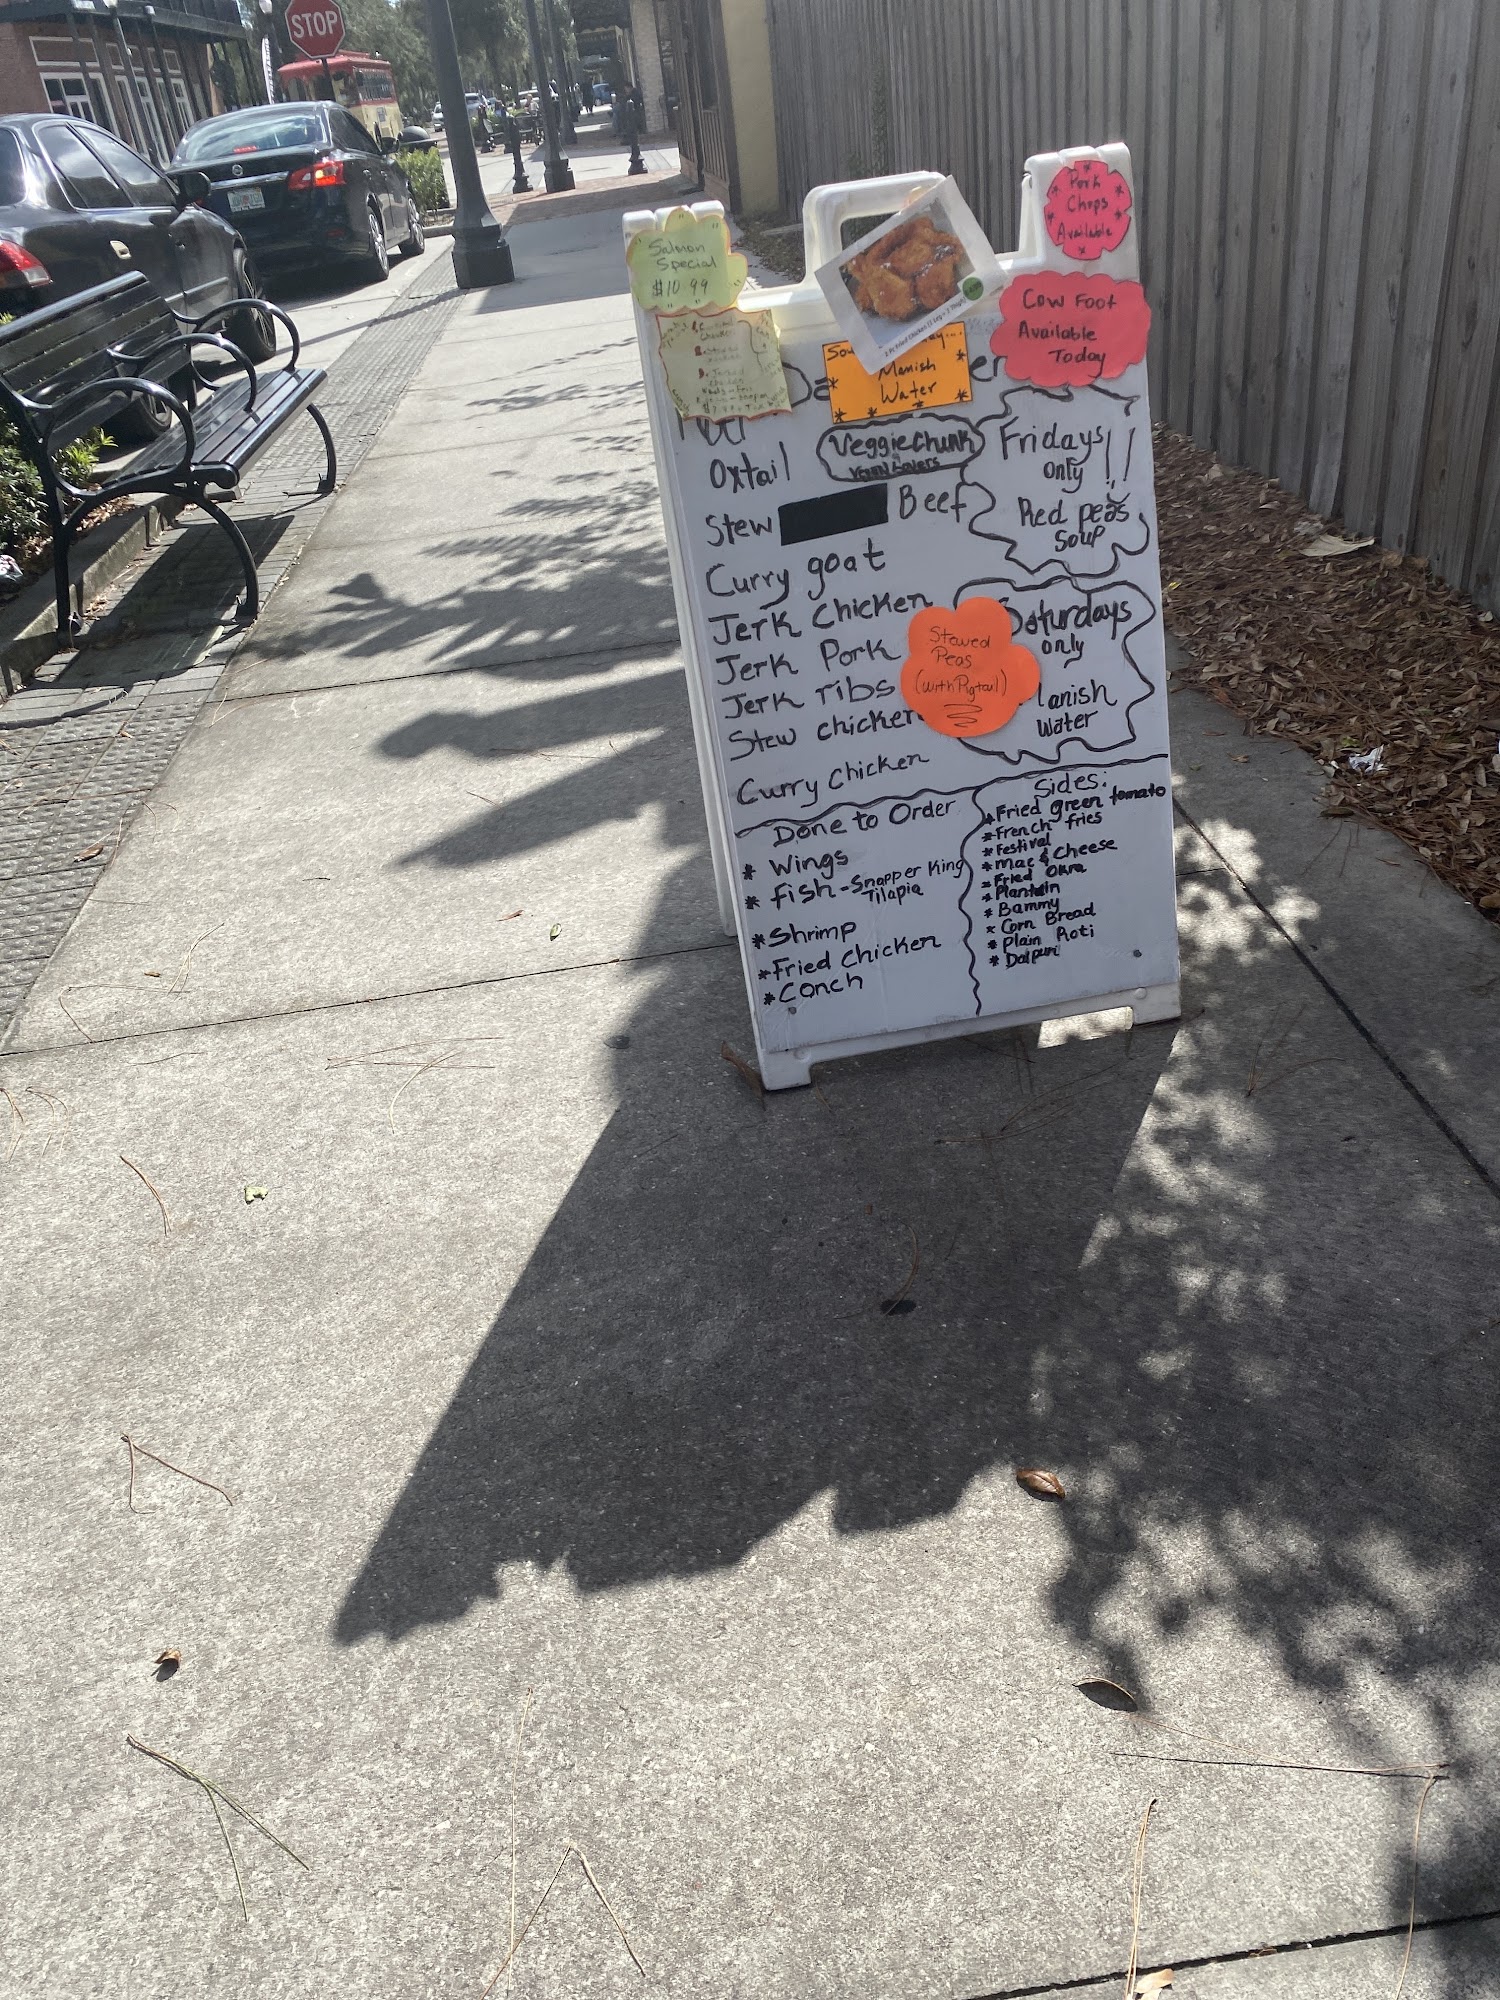 STOP
Salmon
Special
$10.99
Pork
Chops
Available
Cow Foot
Available
Today
Manish
Water
Oxtail
VeggieChunk
Stew Beef
Curry goat
Jerk Chicken
Jerk Pork
Jerk ribs
Stew chicken
Curry Chicken
Fridays
only !!
Red peas
Soup
Stewed
Peas
(with Pigtail)
Saturdays
only
Manish
Water
Done to Order
* Wings
* fish - Snapper King
Tilapia
* Shrimp
* Fried Chicken
* Conch
Sides:
* Fried green tomato
* French fries
* Festival
* Mac & Cheese
* Fried Okra
* Plantain
* Bammy
* Corn Bread
* Plain Roti
* Dalpuri